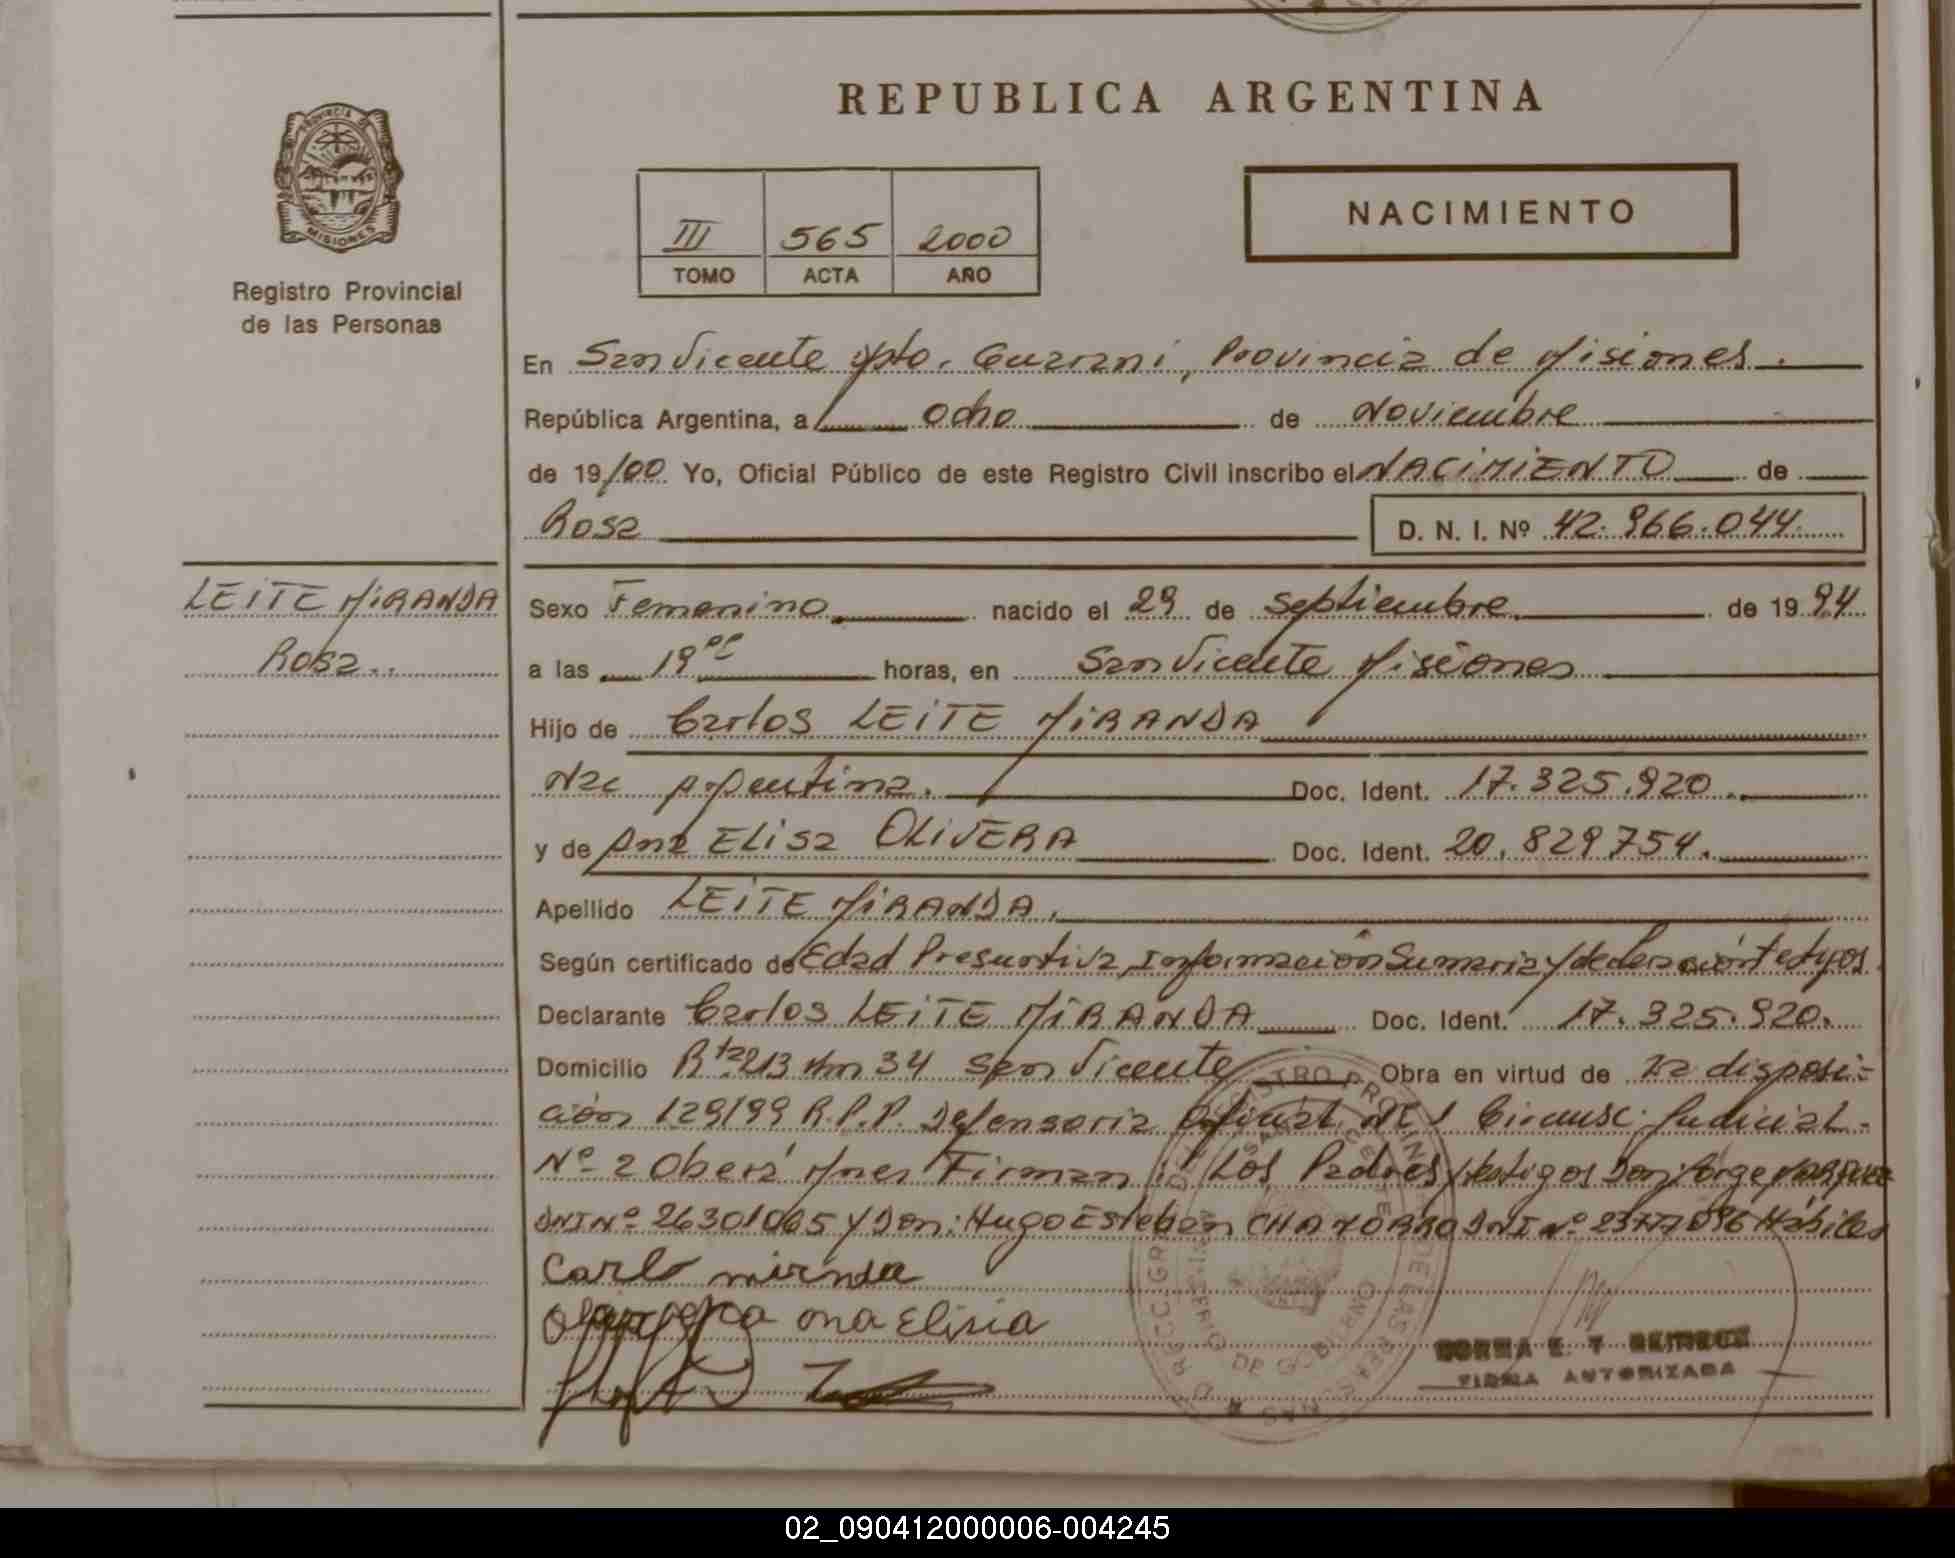 REPUBLICA ARGENTINA
PROVINCIA DE
MISIONES
Registro Provincial
de las Personas
III 565 2000
TOMO ACTA AÑO
NACIMIENTO
En San Vicente Dpto. Guarani, Provincia de Misiones.
República Argentina, a ocho de Noviembre
de 19/00 Yo, Oficial Público de este Registro Civil inscribo el NACIMIENTO de
Rosa D. N. I. Nº 42.966.044.
LEITE MIRANDA
Rosa..
Sexo Femenino nacido el 29 de Septiembre de 19 94
a las 19 horas, en San Vicente Misiones
Hijo de Carlos LEITE MIRANDA
Nac Argentina. Doc. Ident. 17.325.920.
y de Ana Elisa OLIVERA Doc. Ident. 20.829754.
Apellido LEITE MIRANDA.
Según certificado de Edad Presuntiva, Información Sumaria y declaración Testigos
Declarante Carlos LEITE MIRANDA Doc. Ident. 17.325.920.
Domicilio Rta 213 Km 34 San Vicente Obra en virtud de la disposi-
ción 129/99 R.P.P. Defensoria Oficial Nº 1 Circunsc. Judicial-
Nº 2 Oberá Mnes Firman: Los Padres y testigos Don Jorge
DNI Nº 26301065 y Don: Hugo Esteban CHAMORRO DNI Nº 23777096 Hábiles
Carlo miranda
ana Elisia
FIRMA AUTORIZADA
02_090412000006-004245